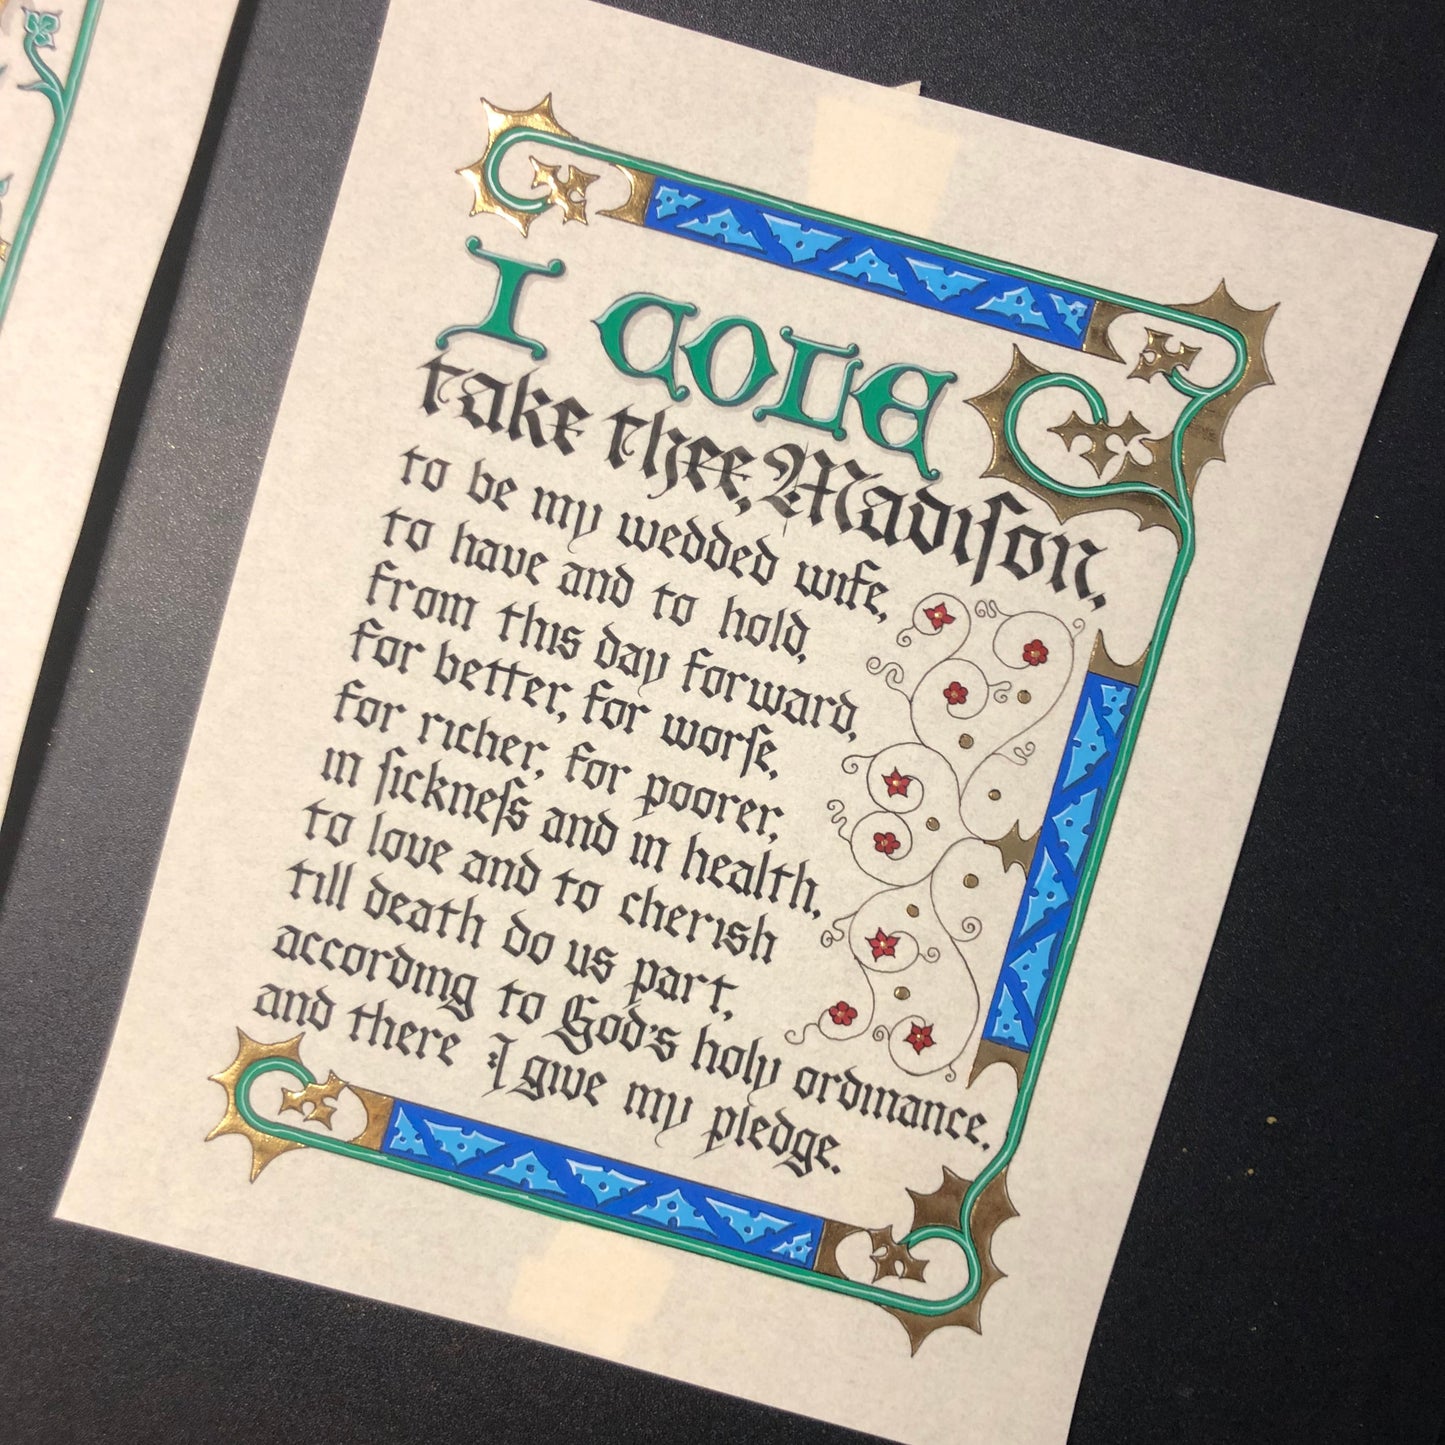 I COLE
take thee, Madiſon,
to be my wedded wife,
to have and to hold,
from this day forward,
for better, for worſe,
for richer, for poorer,
in ſickneſs and in health,
to love and to cherish
till death do us part,
according to God's holy ordinance.
and there I give my pledge.